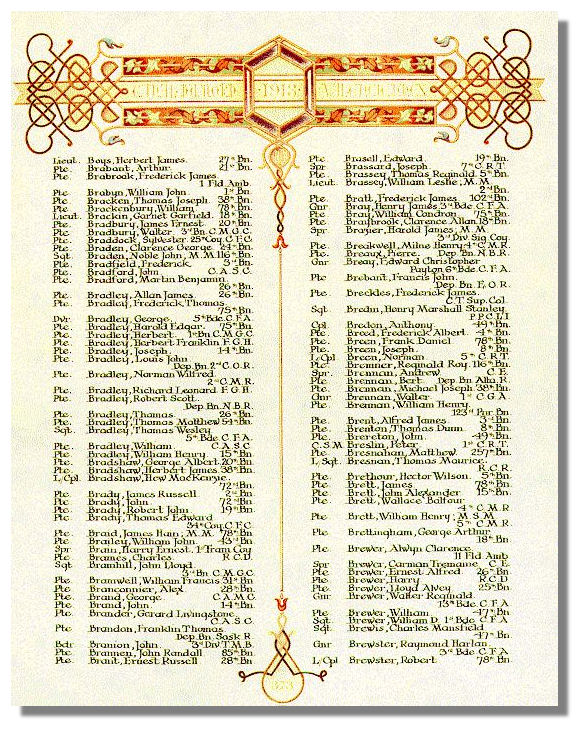 1918
Lieut. Boys, Herbert James. 27th Bn.
Pte. Brabant, Arthur. 21st Bn.
Pte. Brabrook, Frederick James.
1 Fld Amb.
Pte. Brabyn, William John. 1st Bn.
Pte. Bracken, Thomas Joseph. 38th Bn.
Pte. Brackenbury, William. 78th Bn.
Lieut. Brackin, Garnet Garfield. 18th Bn.
Pte. Bradbury, James Ernest. 20th Bn.
Pte. Bradbury, Walter. 3rd Bn. C.M.G.C.
Pte. Braddock, Sylvester. 25th Coy. C.F.C.
Pte. Braden, Clarence George. 24th Bn.
Sgt. Braden, Noble John, M.M. 116th Bn.
Pte. Bradfield, Frederick. 3rd Bn.
Pte. Bradford, John. C.A.S.C.
Pte. Bradford, Martin Benjamin.
26th Bn.
Pte. Bradley, Allan James 26th Bn.
Pte. Bradley, Frederick Thomas.
75th Bn.
Dvr. Bradley, George. 5th Bde. C.F.A.
Pte. Bradley, Harold Edgar. 75th Bn.
Pte. Bradley, Herbert. 1st Bn. C.M.G.C.
Pte. Bradley, Herbert Franklin. F.G.H.
Pte. Bradley, Joseph. 14th Bn.
Pte. Bradley, Louis John
Dep. Bn. 2nd C.O.R.
Pte. Bradley, Norman Wilfred.
2nd C.M.R.
Pte. Bradley, Richard Leonard. F.G.H.
Pte. Bradley, Robert Scott.
Dep. Bn. N.B.R.
Pte. Bradley, Thomas. 26th Bn.
Pte. Bradley, Thomas Matthew. 54th Bn.
Sgt. Bradley, Thomas Wesley.
5th Bde. C.F.A.
Pte. Bradley, William C.A.S.C.
Pte. Bradley, William Henry. 15th Bn.
Pte. Bradshaw, George Albert. 20th Bn.
Pte. Bradshaw, Herbert James. 38th Bn.
L/Cpl. Bradshaw, Hew MacKenzie.
72nd Bn.
Pte. Brady, James Russell. 2nd Bn.
Pte. Brady, John. 72nd Bn.
Pte. Brady, Robert John. 19th Bn.
Pte. Brady, Thomas Edward
34th Coy. C.F.C.
Pte. Braid, James Hain; M.M. 78th Bn.
Pte. Brailey, William John. 43rd Bn.
Spr. Brain, Harry Ernest. 1st Tram Coy
Pte. Braines, Charles. R.C.D.
Sgt. Bramhill, John Lloyd.
3rd Bn. C.M.G.C.
Pte. Bramwell, William Francis. 31st Bn.
Pte. Branconnier, Alex. 28th Bn.
Pte. Brand, George. C.A.M.C.
Pte. Brand, John. 14th Bn.
Pte. Brander, Gerard Livingstone.
C.A.S.C.
Pte. Brandon, Franklin Thomas.
Dep. Bn. Sask R.
Bdr. Brannon, John. 3rd Div. T.M.B.
Pte. Brannen, John Randall 85th Bn.
Pte. Brant, Ernest Russell 28th Bn
Pte. Brasell, Edward 19th Bn.
Spr. Brassard, Joseph. 7th C.R.T.
Pte. Brassey, Thomas Reginald. 5th Bn.
Lieut. Brassey, William Leslie, M.M.
2nd Bn.
Pte. Bratt, Frederick James. 102nd Bn.
Gnr. Bray, Henry James. 3rd Bde. C.F.A.
Pte. Bray, William Condron. 75th Bn.
Pte. Braybrook, Clarence Allan. 18th Bn.
Spr. Brazier, Harold James; M.M.
3rd Div. Sig. Coy.
Pte. Breakwell, Milne Henry. 4th C.M.R.
Pte. Breaux, Pierre. Dep. Bn. N.B.R.
Gnr. Breay, Edward Christopher
Payton. 6th Bde. C.F.A.
Pte. Brebant, Francis John.
Dep. Bn. E.O.R.
Pte. Breckles, Frederick James.
C.T. Sup. Col.
Sgt. Bredin, Henry Marshall Stanley.
P.P.C.L.I.
Cpl. Bredon, Anthony. 49th Bn.
Pte. Breed, Frederick Albert. 4th Bn.
Pte. Breen, Frank Daniel. 78th Bn.
Pte. Breen, Joseph. 8th Bn.
L/Cpl. Breen, Norman. 5th C.R.T.
Pte. Bremner, Reginald Roy. 116th Bn.
Spr. Brennan, Andrew. C.E.
Pte. Brennan, Bert. Dep. Bn. Alba. R.
Pte. Brennan, Michael Joseph. 38th Bn.
Gnr. Brennan, Walter. 1st C.G.A.
Pte. Brennan, William Henry.
123rd Pnr. Bn.
Pte. Brent, Alfred James. 3rd Bn.
Pte. Brenton, Thomas Dunn. 8th Bn.
Pte. Brereton, John. 49th Bn.
C.S.M. Breslin, Peter. 1st C.R.T.
Pte. Bresnahan, Matthew. 257th Bn.
L/Sgt. Bresnan, Thomas Maurice.
R.C.R.
Pte. Brethour, Hector Wilson. 5th Bn.
Pte. Brett, James. 78th Bn.
Pte. Brett, John Alexander. 15th Bn.
Pte. Brett, Wallace Balfour
4th C.M.R.
Pte. Brett, William Henry; M.S.M.
5th C.M.R.
Pte. Brettingham, George Arthur.
18th Bn.
Pte. Brewer, Alwyn Clarence.
11 Fld Amb
Spr. Brewer, Carman Tremaine. C.E.
Pte. Brewer, Ernest Alfred. 26th Bn.
Pte. Brewer, Harry. R.C.D.
Pte. Brewer, Lloyd Alvey. 25th Bn
Gnr. Brewer, Walter Reginald.
13th Bde. C.F.A
Pte. Brewer, William. 47th Bn.
Sgt. Brewer, William D. 1st Bde C.F.A
Sgt. Brewis, Charles Mansfield.
47th Bn.
Gnr. Brewster, Raymond Harlan
3rd Bde. C.F.A
L/Cpl. Brewster, Robert. 78th Bn.
373